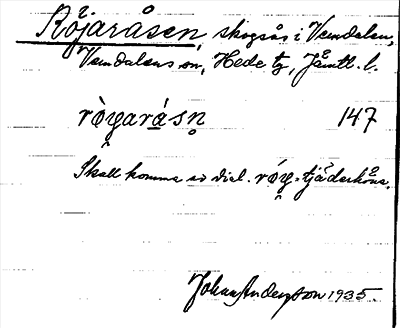 Röjaråsen, skogsås i Vemdalen,
Vemdalens sn, Hede tg, Jämtl. l.
rò̭yarásn̥ 147
Skall komma av dial. róy = tjäderhöna.
Johan Anderson 1935.